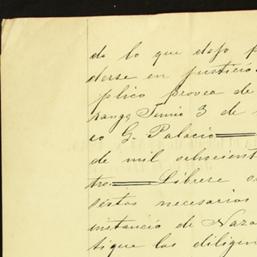 do lo que dejo p
derse en justicia
plico provea de
rango Junio 3 de
co G. Palacio
de mil ochocient
tro. Librese o
sertos necesarios
instancia de Naza
tique las diligen